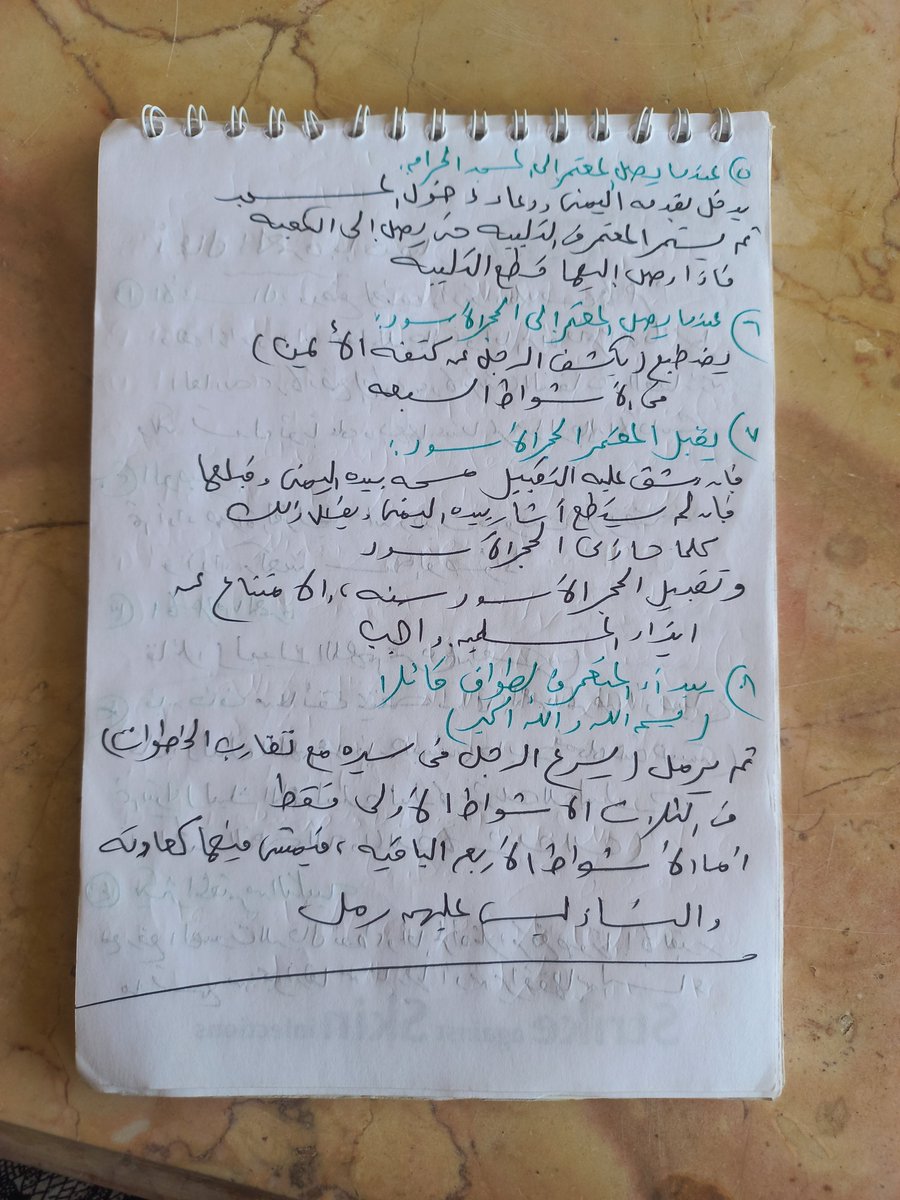 ٥) عندما يصل المعتمر إلى المسجد الحرام:
يدخل بقدمه اليمنى ودعاء دخول المسجد
ثم يستمر المعتمر في التلبية حتى يصل إلى الكعبة
فإذا وصل إليها قطع التلبية
٦) عندما يصل المعتمر إلى الحجر الأسود:
يضطبع (يكشف الرجل عن كتفه الأيمن)
في الأشواط السبعه
٧) يقبل المعتمر الحجر الأسود:
فإن شق عليه التقبيل مسحه بيده اليمنى وقبلها
فإن لم يستطع أشار بيده اليمنى ويفعل ذلك
كلما حاذى الحجر الأسود
وتقبيل الحجر الأسود سنه، والامتناع عن
ايذاء المسلمين واجب
٨) يبدأ المعتمر في الطواف قائلا
(بسم الله والله أكبر)
ثم يرمل (يسرع الرجل في سيره مع تقارب الخطوات)
في الثلاث الأشواط الأولى فقط
أما الأشواط الأربع الباقيه، فيمشي فيها كعادته
والنساء ليس عليهن رمل
Strike against Skin infections